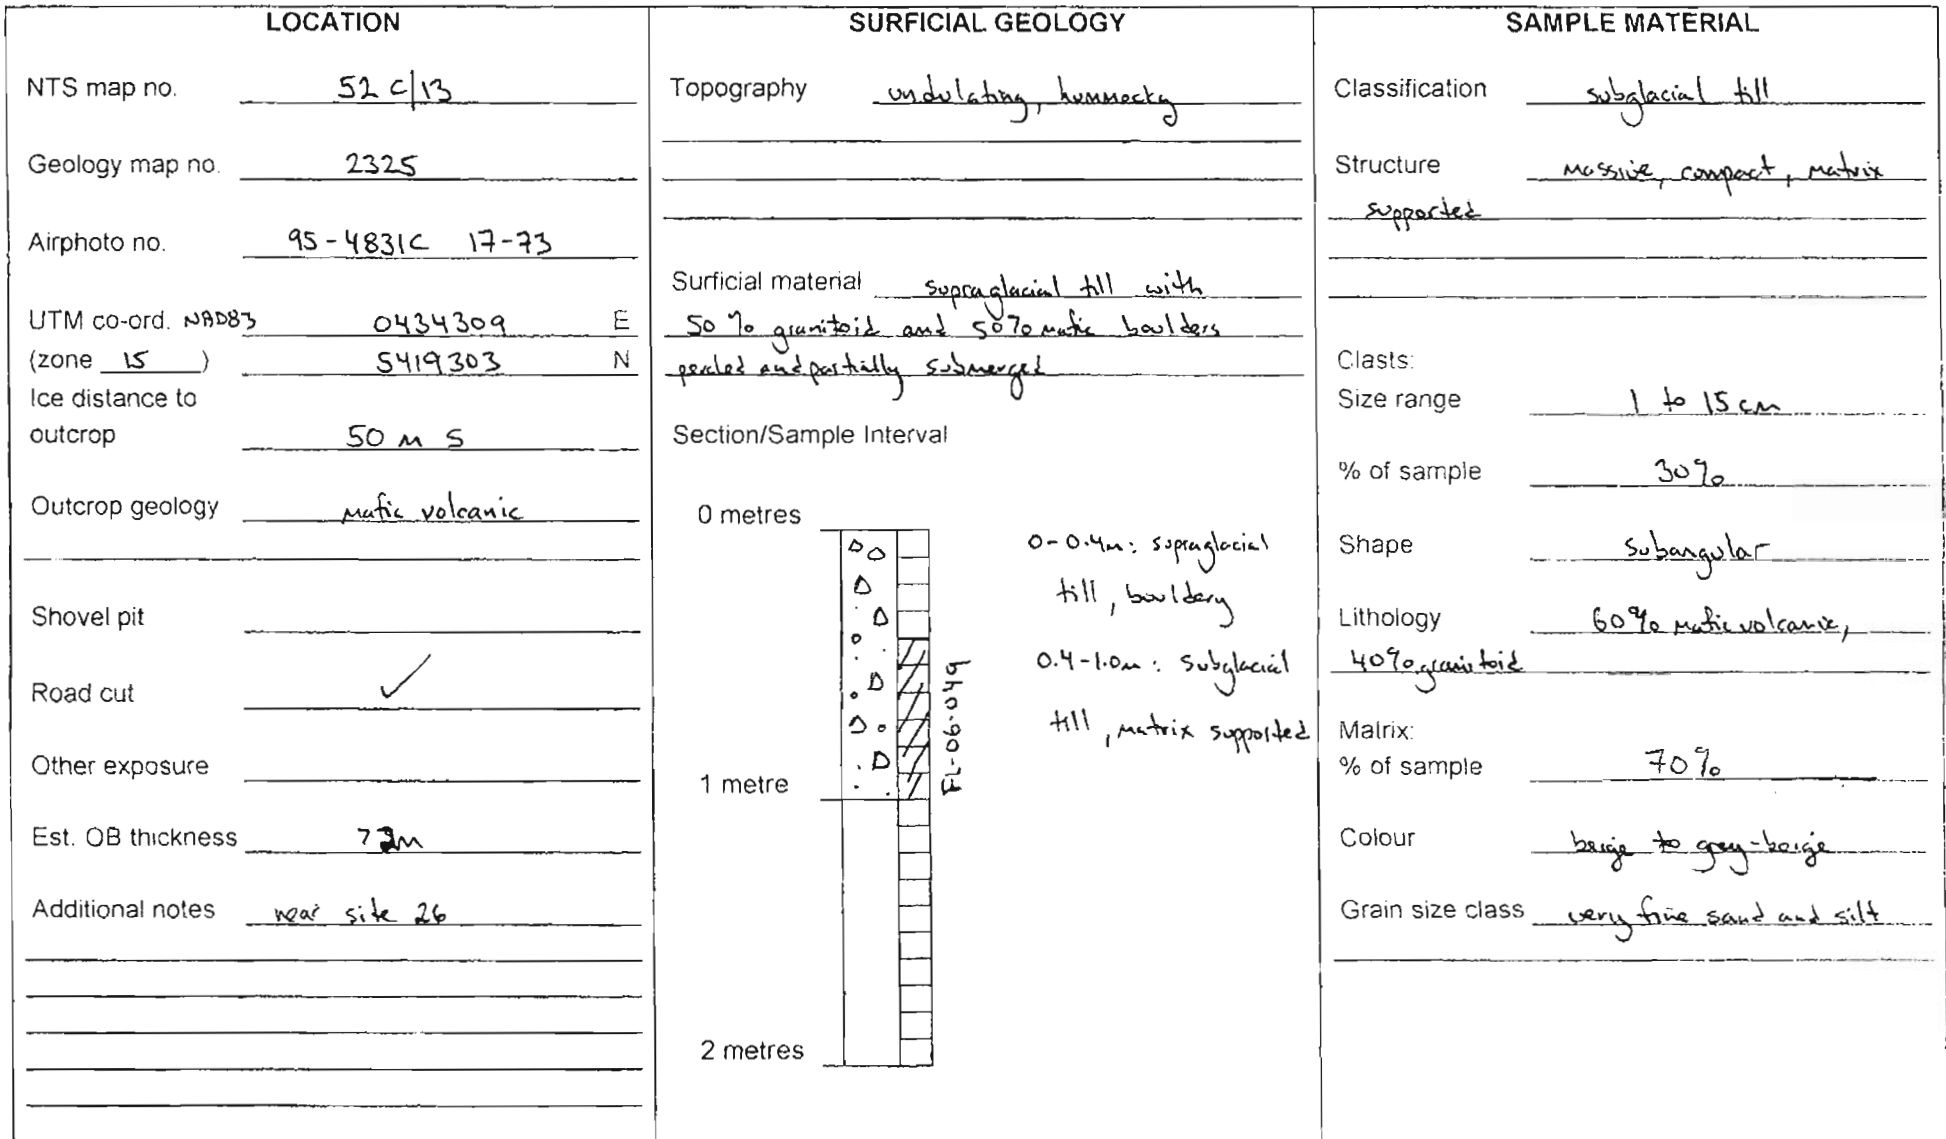 LOCATION
NTS map no. 52 C/13
Geology map no. 2325
Airphoto no. 95-4831C 17-73
UTM co-ord. NAD83 0434309 E
(zone 15) 5419303 N
Ice distance to
outcrop 50 m S
Outcrop geology mafic volcanic
Shovel pit
Road cut ✓
Other exposure
Est. OB thickness
Additional notes near site 26
SURFICIAL GEOLOGY
Topography undulating, hummocky
Surficial material supraglacial till with
50% granitoid and 50% mafic boulders
perched and partially submerged
Section/Sample Interval
0 metres
1 metre
2 metres
FL-06-049
0-0.4m: supraglacial
till, bouldery
0.4-1.0m: subglacial
till, matrix supported
SAMPLE MATERIAL
Classification subglacial till
Structure massive, compact, matrix
supported
Clasts:
Size range 1 to 15 cm
% of sample 30%
Shape subangular
Lithology 60% mafic volcanic,
40% granitoid
Matrix:
% of sample 70%
Colour beige to grey-beige
Grain size class very fine sand and silt